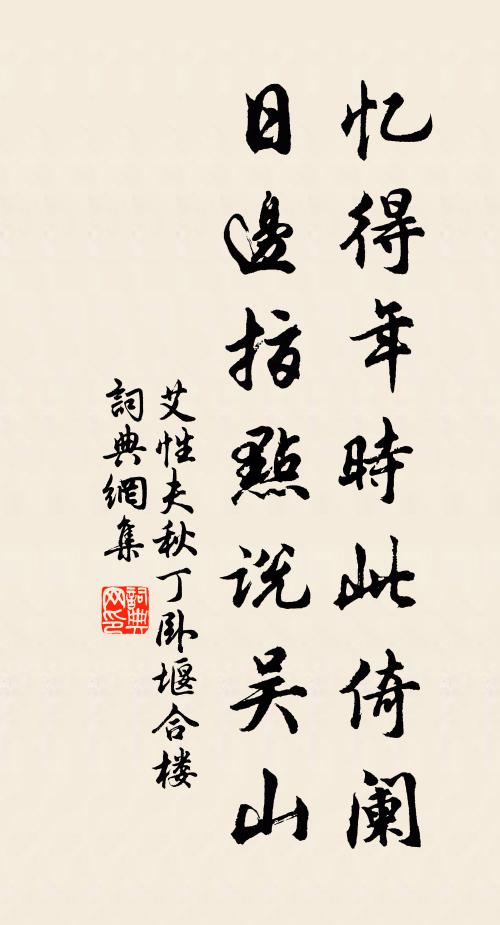 忆得年時此倚阑
日邊指點说吴山
艾性夫秋丁卧堰合楼
詞典網集
詞典网印